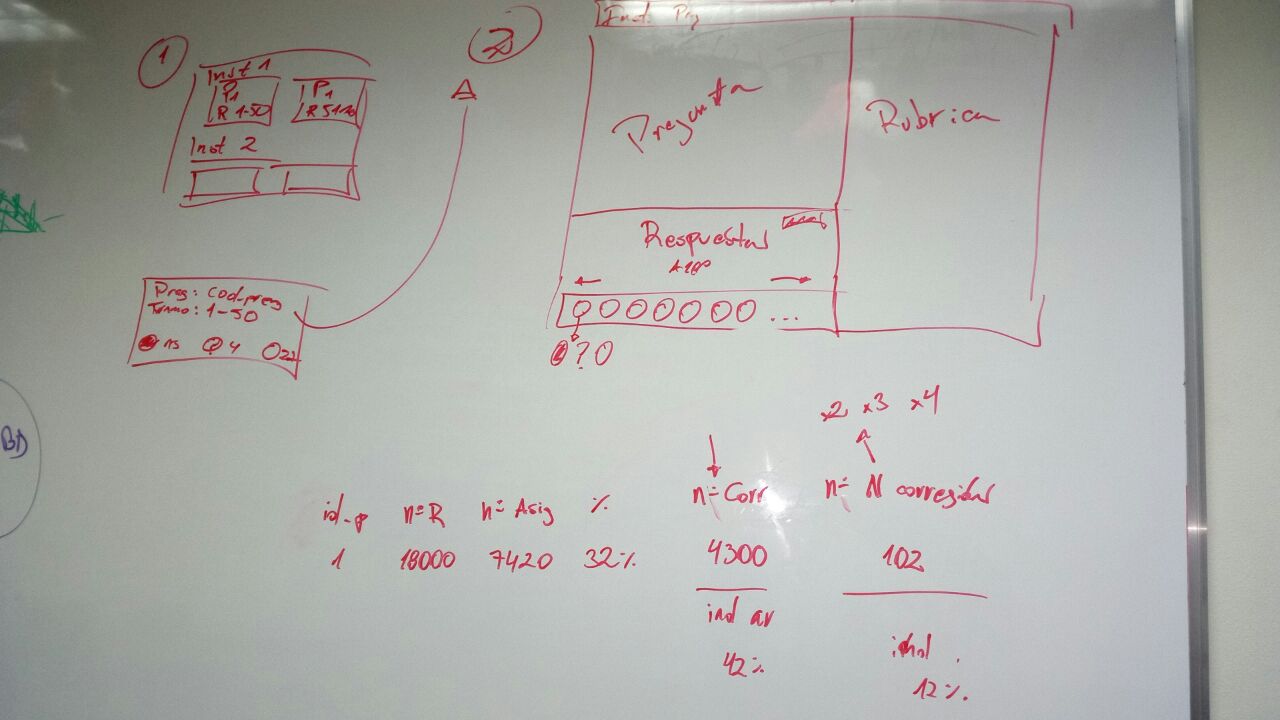 1
Inst 1
P1
R 1-50
P1
Inst 2
Preg: Cod_preg
Tramo: 1-50
15 4 22
2
Inst. Preg
Pregunta
Rubrica
Respuestas
...
? 0
x2 x3 x4
id_p n=R n=Asig % n=Corr n= N corregidas
1 18000 7420 32% 4300 102
ind av
42%
ind.
12%
BD